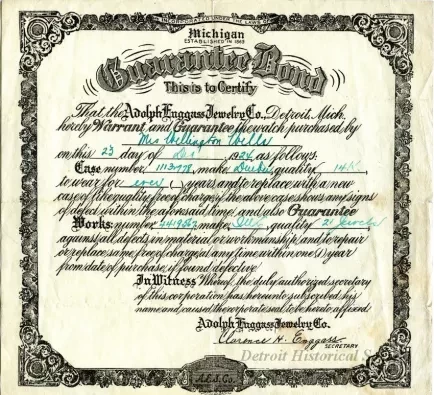 INCORPORATED UNDER THE LAWS OF
Michigan
ESTABLISHED IN 1865
Guarantee Bond
This is to Certify
That the Adolph Enggass Jewelry Co., Detroit, Mich.
hereby Warrant and Guarantee the watch purchased by
Mrs Wellington Wells
on this 23 day of 1924, as follows:
Case number, make quality 14K
to wear for ever ( ) years and to replace with a new
case of like quality free of charge, if the above case shows any signs
of defect within the aforesaid time, and also Guarantee
Works: number make quality 21 Jewels
against all defects in material or workmanship, and to repair
or replace same free of charge, at any time within one (1) year
from date of purchase, if found defective.
In Witness Whereof, the duly authorized secretary
of this corporation has hereunto subscribed his
name and caused the corporate seal to be hereto affixed.
Adolph Enggass Jewelry Co.
Clarence H. Enggass
SECRETARY
Detroit Historical S
A.E.J. Co.